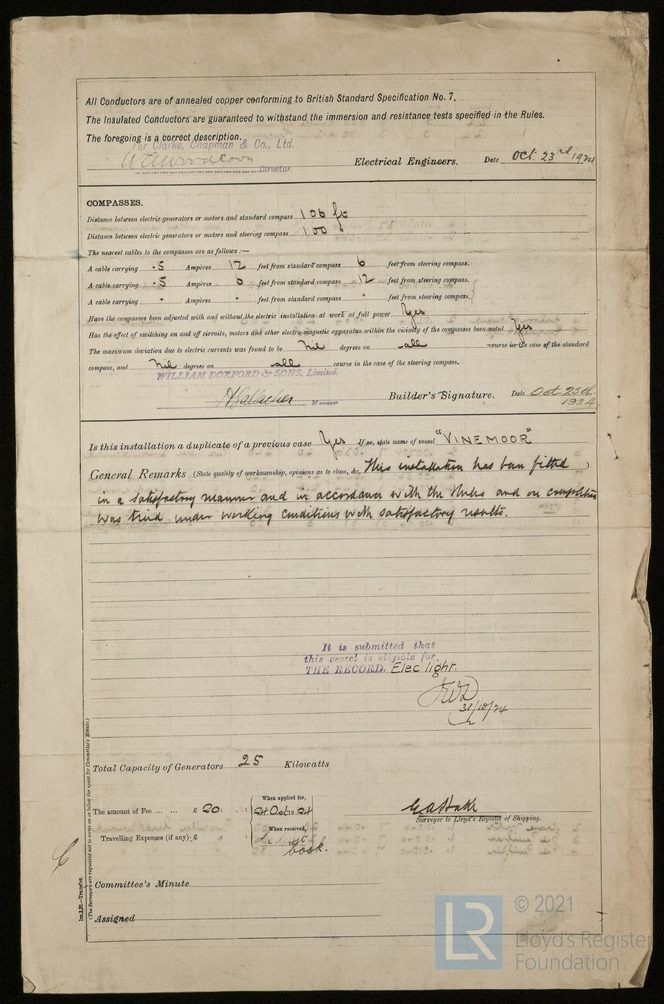 All Conductors are of annealed copper conforming to British Standard Specification No. 7.
The Insulated Conductors are guaranteed to withstand the immersion and resistance tests specified in the Rules.
The foregoing is a correct description.
For Clarke, Chapman & Co., Ltd.
Director.
Electrical Engineers. Date Oct. 23rd 1924
COMPASSES.
Distance between electric generators or motors and standard compass 106 ft
Distance between electric generators or motors and steering compass 100 "
The nearest cables to the compasses are as follows:—
A cable carrying .5 Ampères 12 feet from standard compass 6 feet from steering compass.
A cable carrying .5 Ampères 6 feet from standard compass 12 feet from steering compass.
A cable carrying - Ampères - feet from standard compass - feet from steering compass.
Have the compasses been adjusted with and without the electric installation at work at full power Yes
Has the effect of switching on and off circuits, motors and other electro-magnetic apparatus within the vicinity of the compasses been noted Yes
The maximum deviation due to electric currents was found to be Nil degrees on all course in the case of the standard
compass, and Nil degrees on all course in the case of the steering compass.
WILLIAM DOXFORD & SONS, Limited.
Manager
Builder's Signature. Date Oct 25th
1924.
Is this installation a duplicate of a previous case Yes If so, state name of vessel "VINEMOOR"
General Remarks (State quality of workmanship, opinions as to class, &c. This installation has been fitted )
in a satisfactory manner and in accordance with the Rules and on completion
was tried under working conditions with satisfactory results.
It is submitted that
this vessel is eligible for
THE RECORD. Elec light.
31/10/24
Total Capacity of Generators 25 Kilowatts
The amount of Fee ... ... £ 20 : :
When applied for,
24 Oct 1924
Travelling Expenses (if any) £ : :
When received,
book.
Surveyor to Lloyd's Register of Shipping.
Committee's Minute
Assigned
Im.1.21.—Transfer.
(The Surveyors are requested not to write on or below the space for Committee's Minute.)
LR
© 2021
Lloyd's Register
Foundation